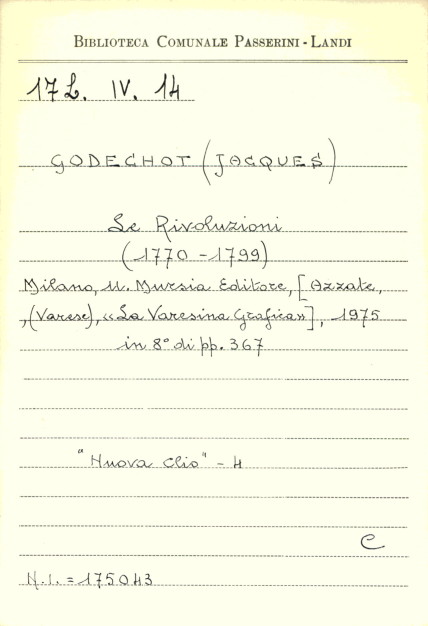 BIBLIOTECA COMUNALE PASSERINI - LANDI
17 L. IV. 14
GODECHOT (JACQUES)
Le Rivoluzioni
(1770 - 1799)
Milano, U. Mursia Editore, [Azzate,
,(Varese), «La Varesina Grafica»], 1975
in 8° di pp. 367
"Nuova Clio" - 4
C
N.I. = 175043